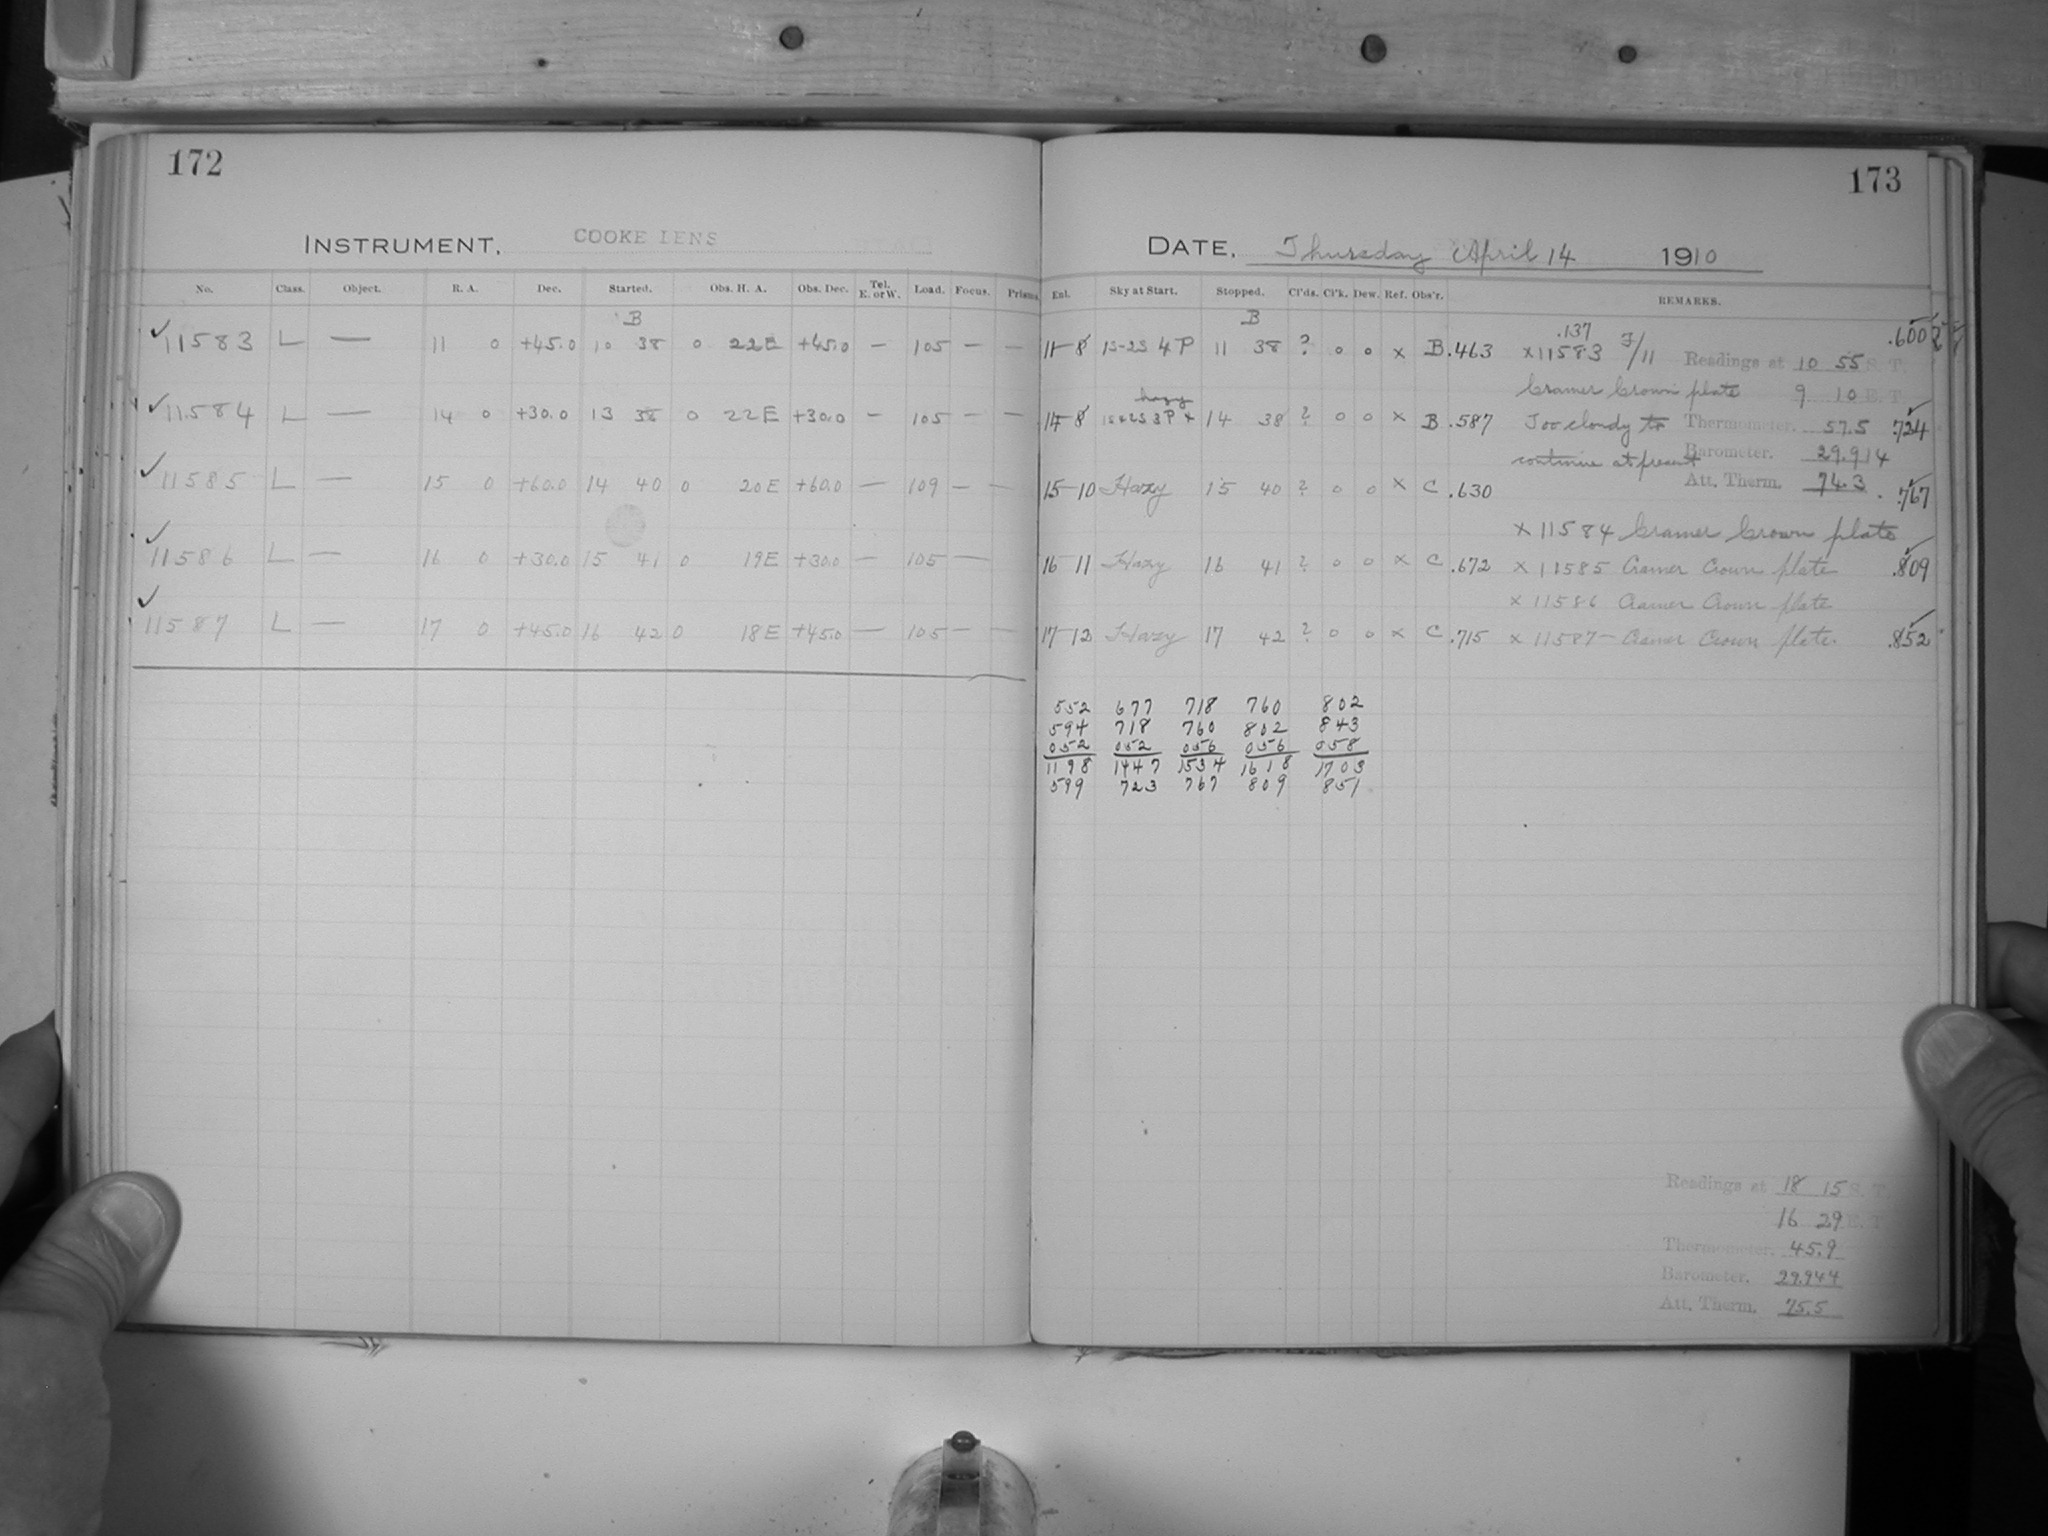 172
INSTRUMENT, COOKE LENS
No. Class. Object. R. A. Dec. Started. Obs. H. A. Obs. Dec. Tel. E. or W. Load. Focus. Prisms
B
✓ 11583 L — 11 0 +45.0 10 38 0 22E +45.0 — 105 — —
✓ 11584 L — 14 0 +30.0 13 38 0 22E +30.0 — 105 — —
✓ 11585 L — 15 0 +60.0 14 40 0 20E +60.0 — 109 — —
✓ 11586 L — 16 0 +30.0 15 41 0 19E +30.0 — 105 —
✓ 11587 L — 17 0 +45.0 16 42 0 18E +45.0 — 105 — —
173
DATE, Thursday April 14 1910
Enl. Sky at Start. Stopped. Cl'ds. Cl'k. Dew. Ref. Obs'r. REMARKS.
B
.137
11-8 1S-2S 4P 11 38 ? 0 0 x B .463 x11583 F/11 Readings at 10 55 S. T. .600
Cramer Crown plate 9 10 E. T.
hazy
14-8 3P 14 38 ? 0 0 x B .587 Too cloudy to Thermometer. 57.5 .724
continue at present Barometer. 29.914
Att. Therm. 74.3
15-10 Hazy 15 40 ? 0 0 x C .630 .767
x 11584 Cramer Crown plate
16-11 Hazy 16 41 ? 0 0 x C .672 x 11585 Cramer Crown plate .809
x 11586 Cramer Crown plate
17-12 Hazy 17 42 ? 0 0 x C .715 x 11587 - Cramer Crown plate. .852
552 677 718 760 802
594 718 760 802 843
052 052 056 056 058
1198 1447 1534 1618 1703
599 723 767 809 851
Readings at 18 15 S. T.
16 29 E. T.
Thermometer. 45.9
Barometer. 29.944
Att. Therm. 75.5